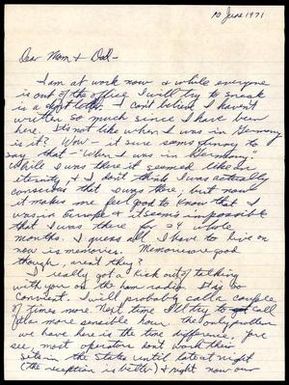 10 June 1971
Dear Mom & Dad -
I am at work now & while everyone
is out of the office I will try to sneak
is a short letter. I can't believe I haven't
written so much since I have been
here. It's not like when I was in Germany
is it? Wow - it sure sounds funny to
say that "When I was in Germany"
While I was there it seemed like an
eternity & I don't think I was actually
conscious that I was there, but now
it makes me feel good to know that I
was in Europe & it seems impossible
that I was there for 24 whole
months. I guess all I have to live on
now is memories. Memories are good
though, aren't they?
I really got a kick out of talking
with you on the ham radio. It is so
convient. I will probably call a couple
of times more. Next time I'll try to call
at a more sensible hour. The only problem
we have here is the time difference. You
see, most operators don't work their
sets in the States until late at night
(the reception is better) & right now our